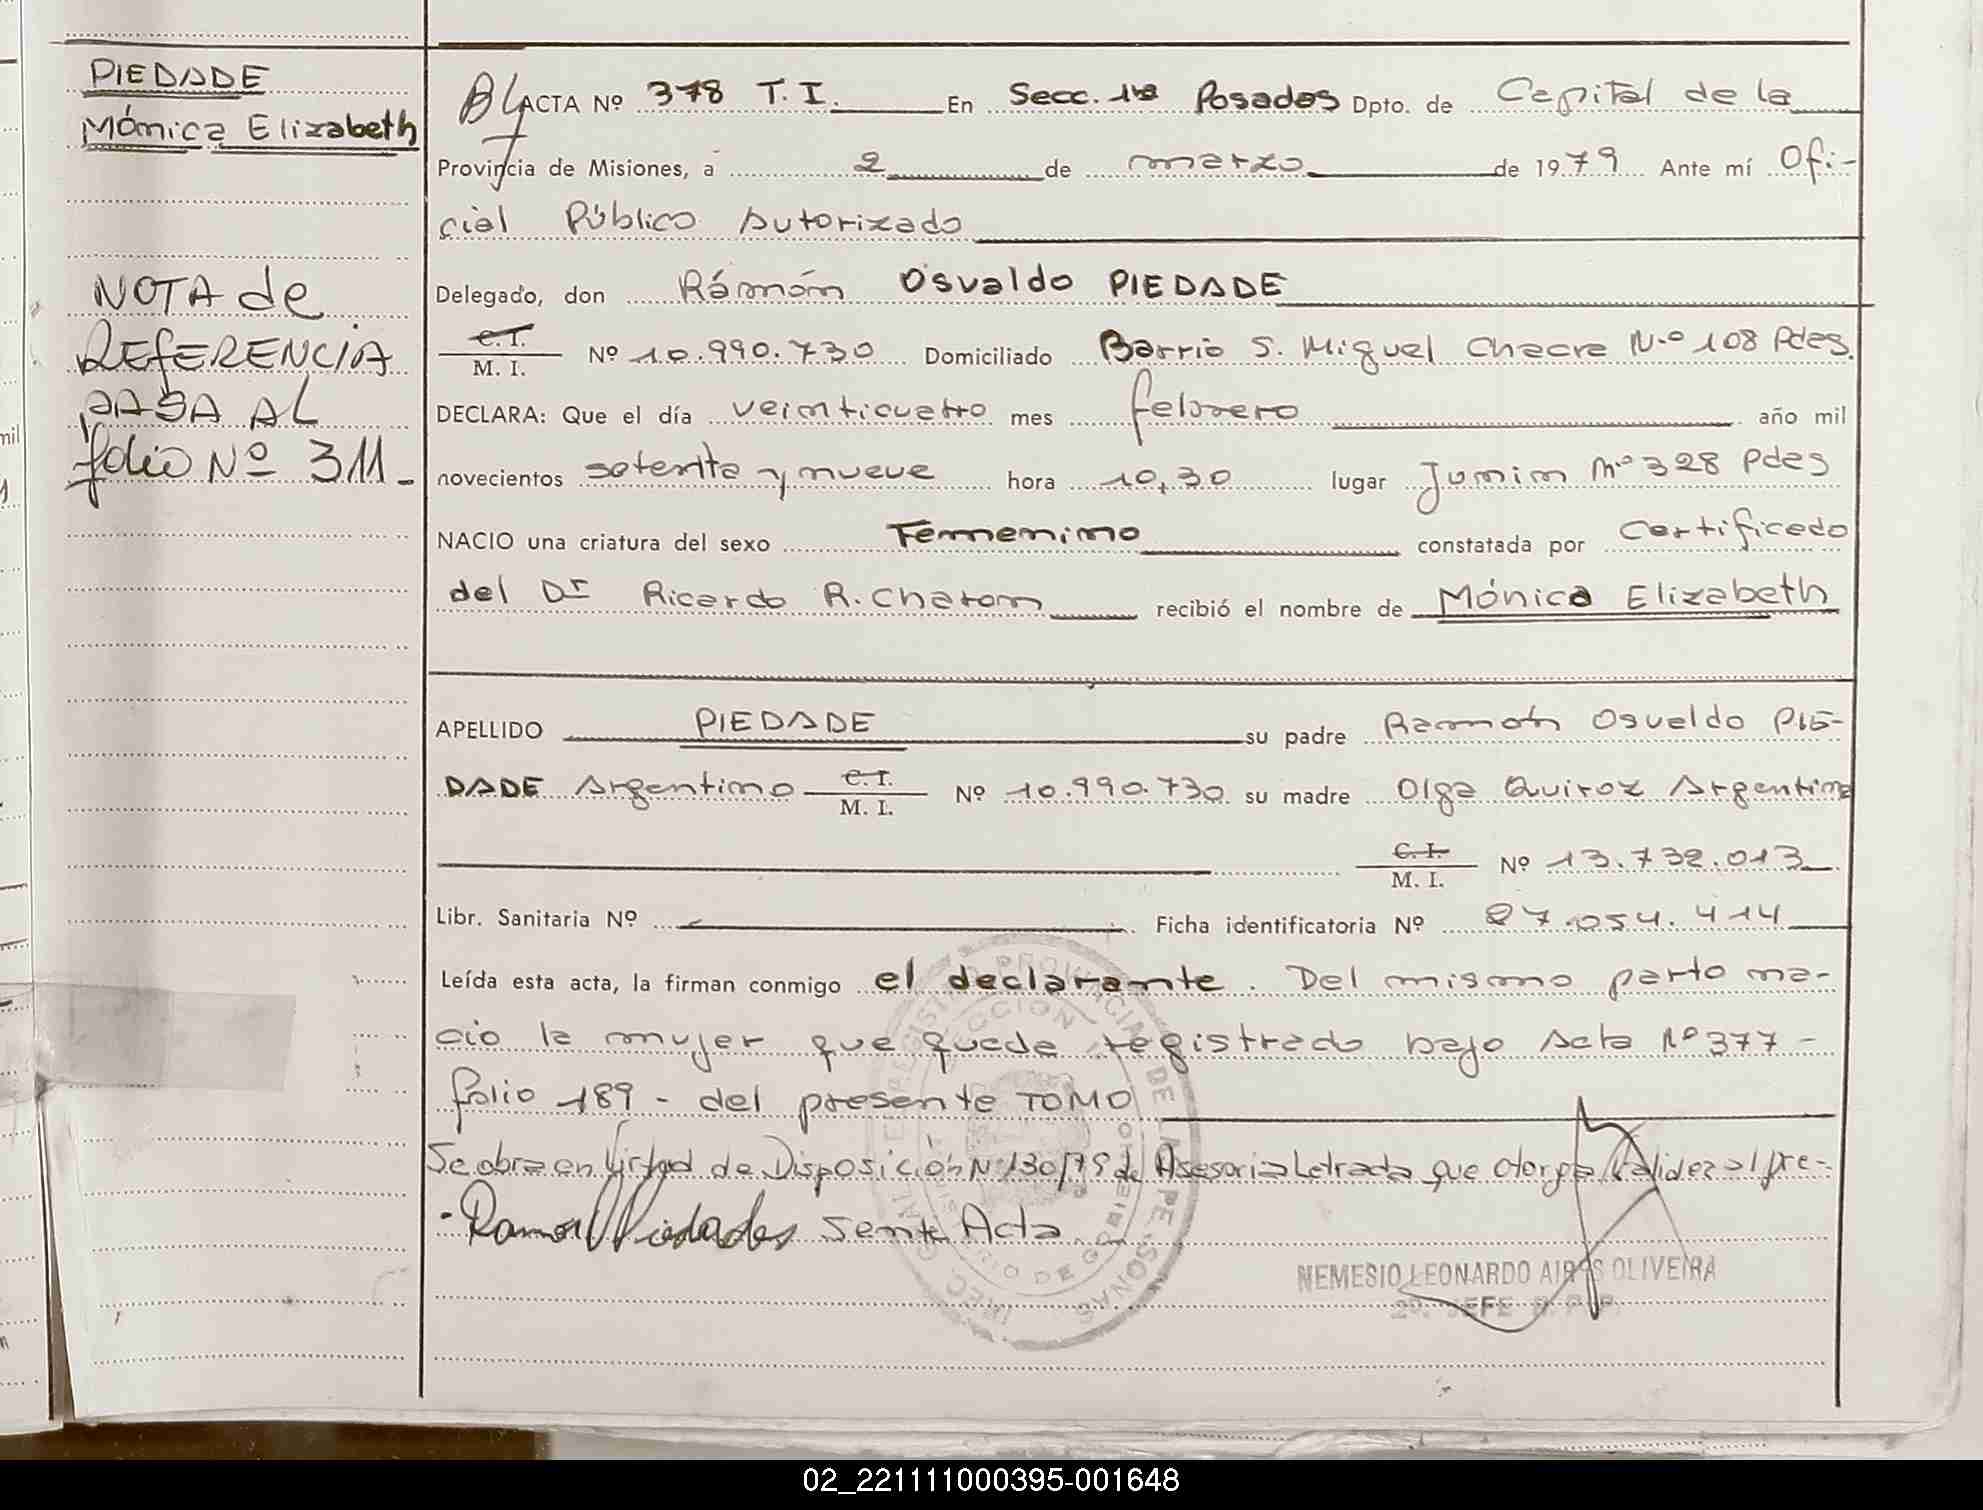 PIEDADE
Mónica Elizabeth
NOTA de
REFERENCIA
PASA AL
folio Nº 311.-
ACTA Nº 378 T.I. En Secc. 1ra Posadas Dpto. de Capital de la
Provincia de Misiones, a 2 de marzo de 1979 Ante mí Ofi-
cial Público Autorizado
Delegado, don Rámón Osvaldo PIEDADE
C.I.
M. I. Nº 10.990.730 Domiciliado Barrio S. Miguel Chacra N.º 108 Pdas.
DECLARA: Que el día veinticuatro mes febrero año mil
novecientos setenta y nueve hora 10,30 lugar Junin Nº 328 Pdas
NACIO una criatura del sexo Femenino constatada por Certificado
del Dr Ricardo R. Chatom recibió el nombre de Mónica Elizabeth
APELLIDO PIEDADE su padre Ramón Osvaldo PIE-
DADE Argentino C.I.
M. I. Nº 10.990.730 su madre Olga Quiroz Argentina
C.I.
M. I. Nº 13.732.013
Libr. Sanitaria Nº Ficha identificatoria Nº 27.054.414
Leída esta acta, la firman conmigo el declarante. Del mismo parto na-
cio la mujer que queda registrado bajo Acta Nº 377 -
folio 189 - del presente TOMO
Se obra en Virtud de Disposición Nº 130/79 de Asesoria Letrada que otorga validez al pre-
Ramon Piedade sente Acta
NEMESIO LEONARDO AIRES OLIVEIRA
2º. JEFE R.P.P.
02_221111000395-001648